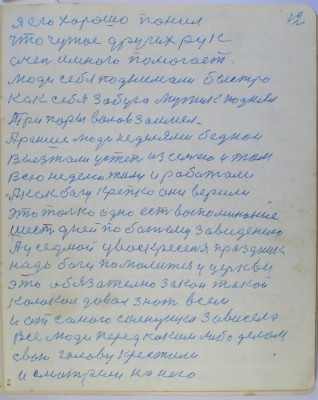 12
я его хорошо понил
что чужое других рук
очен много помогает.
люди себя поднимали быстро
как себя забуга мужик поднял
Три пары волов заимел.
Аранше люди неделями бедной
выезжали устеп из села и там
всю неделю там и работали
А как богу крепко они верили
это толко одно ест воспоминание
шест дней по божему завидению
А у седмой увоскресеня праздник
надо богу помолится у церкви
это обязателно закон такой
колокол давал знат всем
и от самого солнушка зависело
все люди перед каким либо делом
свою голову крестили
и смотрели на него